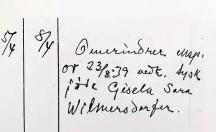 5/4 8/4 Omerindrer insp.
or 23/8-39 vedt. tysk
jøde Gisela Sara
Wilmersdorfer.